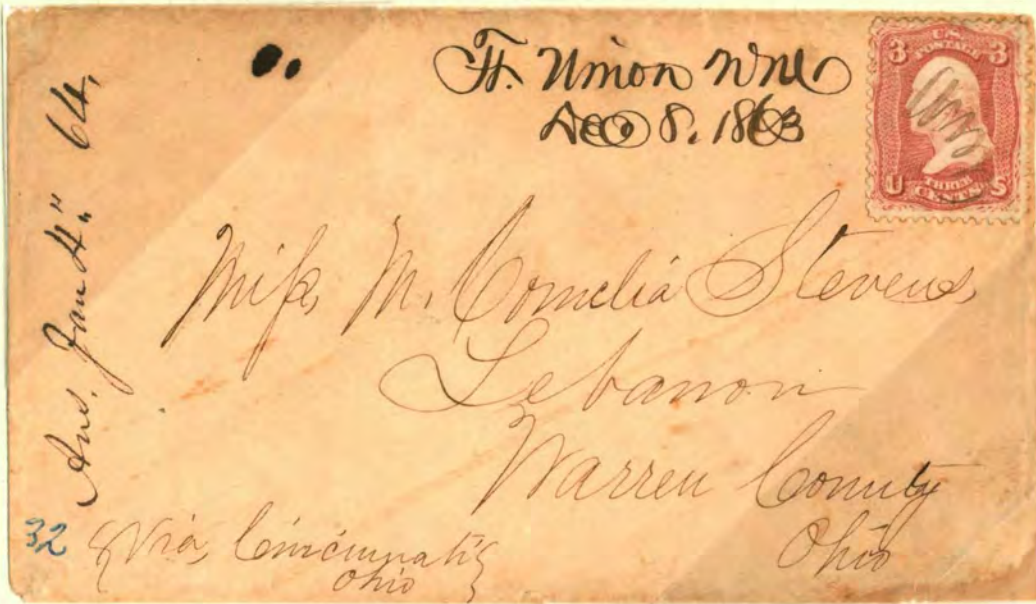 Ft. Union N M
Dec 8. 1863
U.S.
POSTAGE
3 3
THREE
CENTS
U S
Miss, M. Cornelia Stevens,
Lebanon
Warren County
Ohio
{Via, Cincinnati}
Ohio
32
Ans. Jan 4" 64,